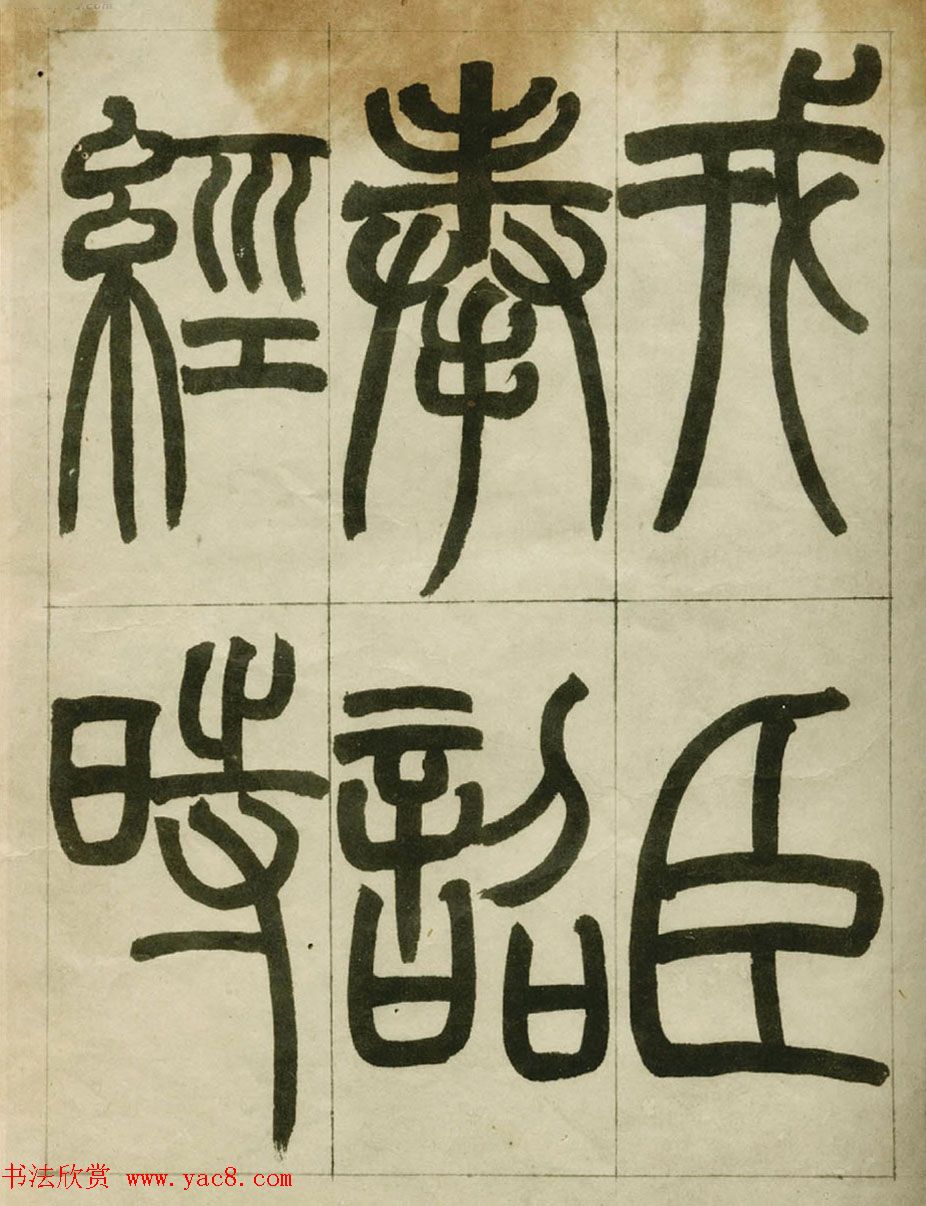 戎臣
奉詔
經時
书法欣赏 www.yac8.com